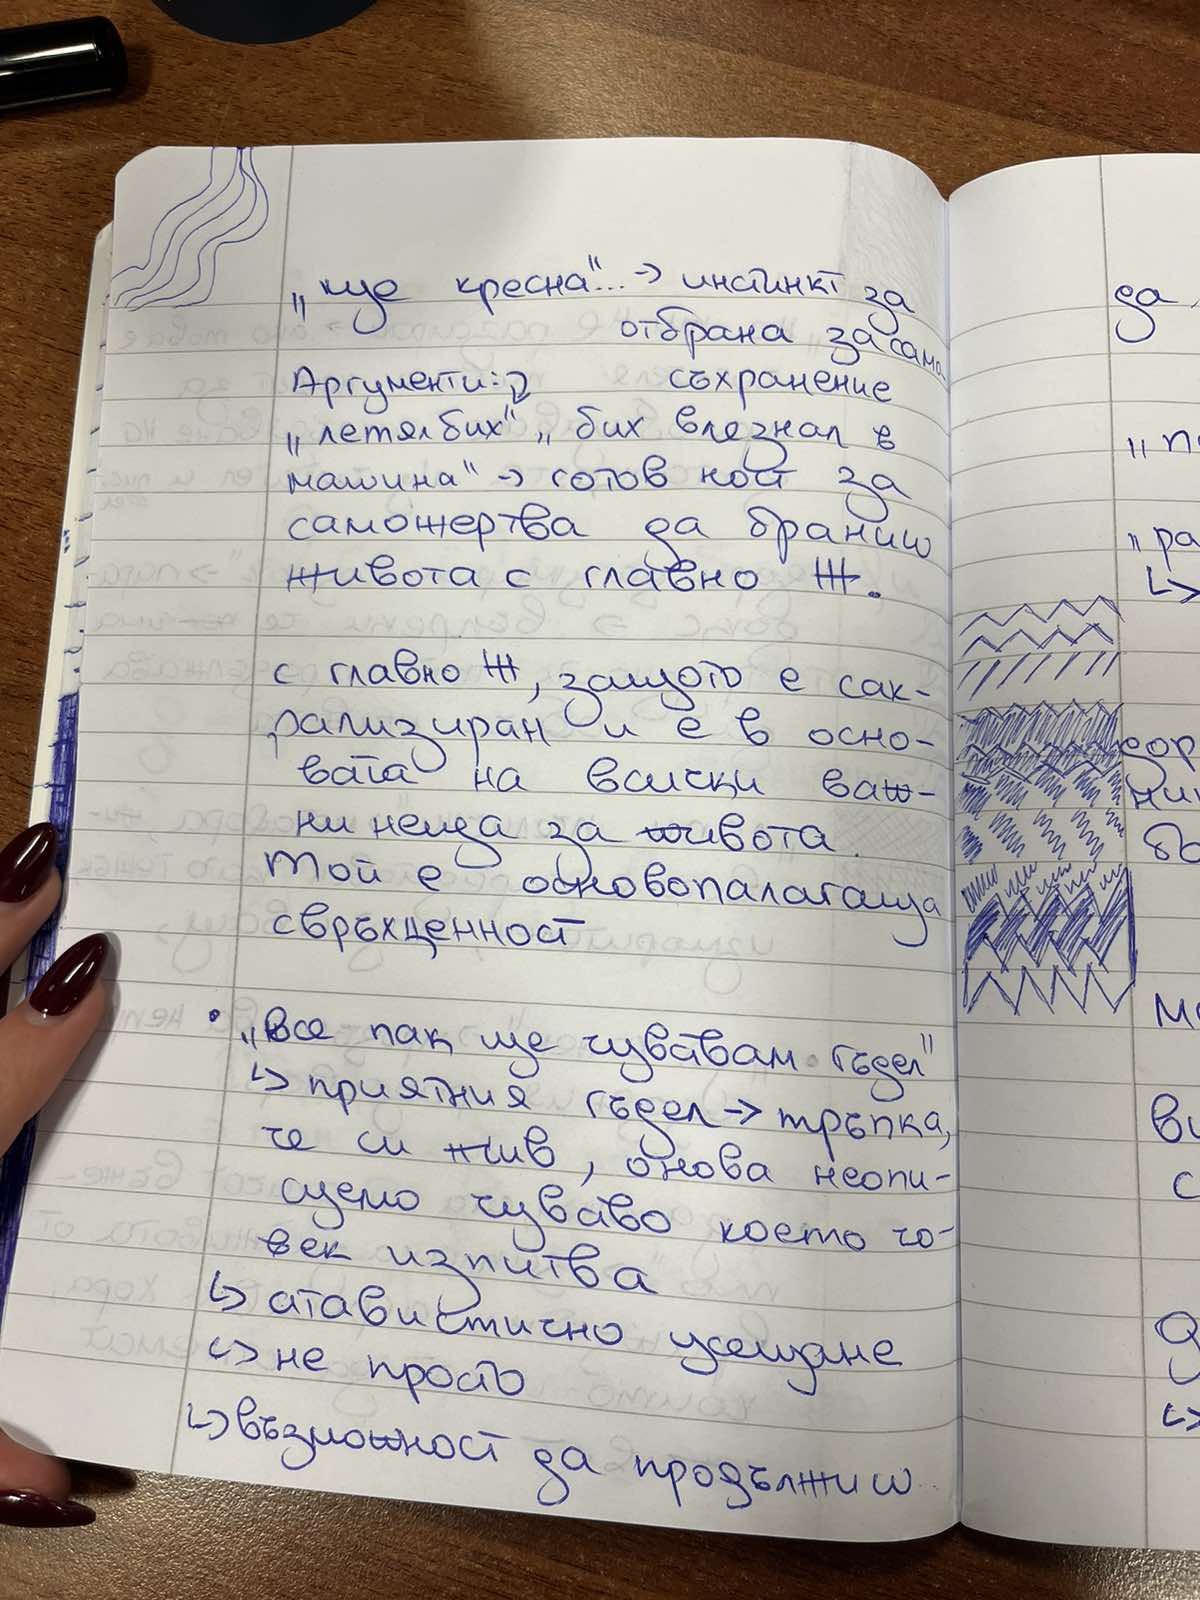 „ще кресна“... → инстинкт за
отбрана за само-
Аргументи: съхранение
„летял бих“, „бих влезнал в
машина“ → готов ност за
саможертва да браниш
живота с главно Ж.
с главно Ж, защото е сак-
рализиран и е в осно-
вата на всички важ-
ни неща за живота.
Той е основополагаща
свръхценност
• „Все пак ще чувавам гъдел“
↳ приятния гъдел → тръпка,
че си жив, онова неопи-
суемо чуваво което чо-
век изпитва
↳ атавистично усещане
↳ не просто
↳ възможност да продължиш
да
„ра
↳
ви
с
↳